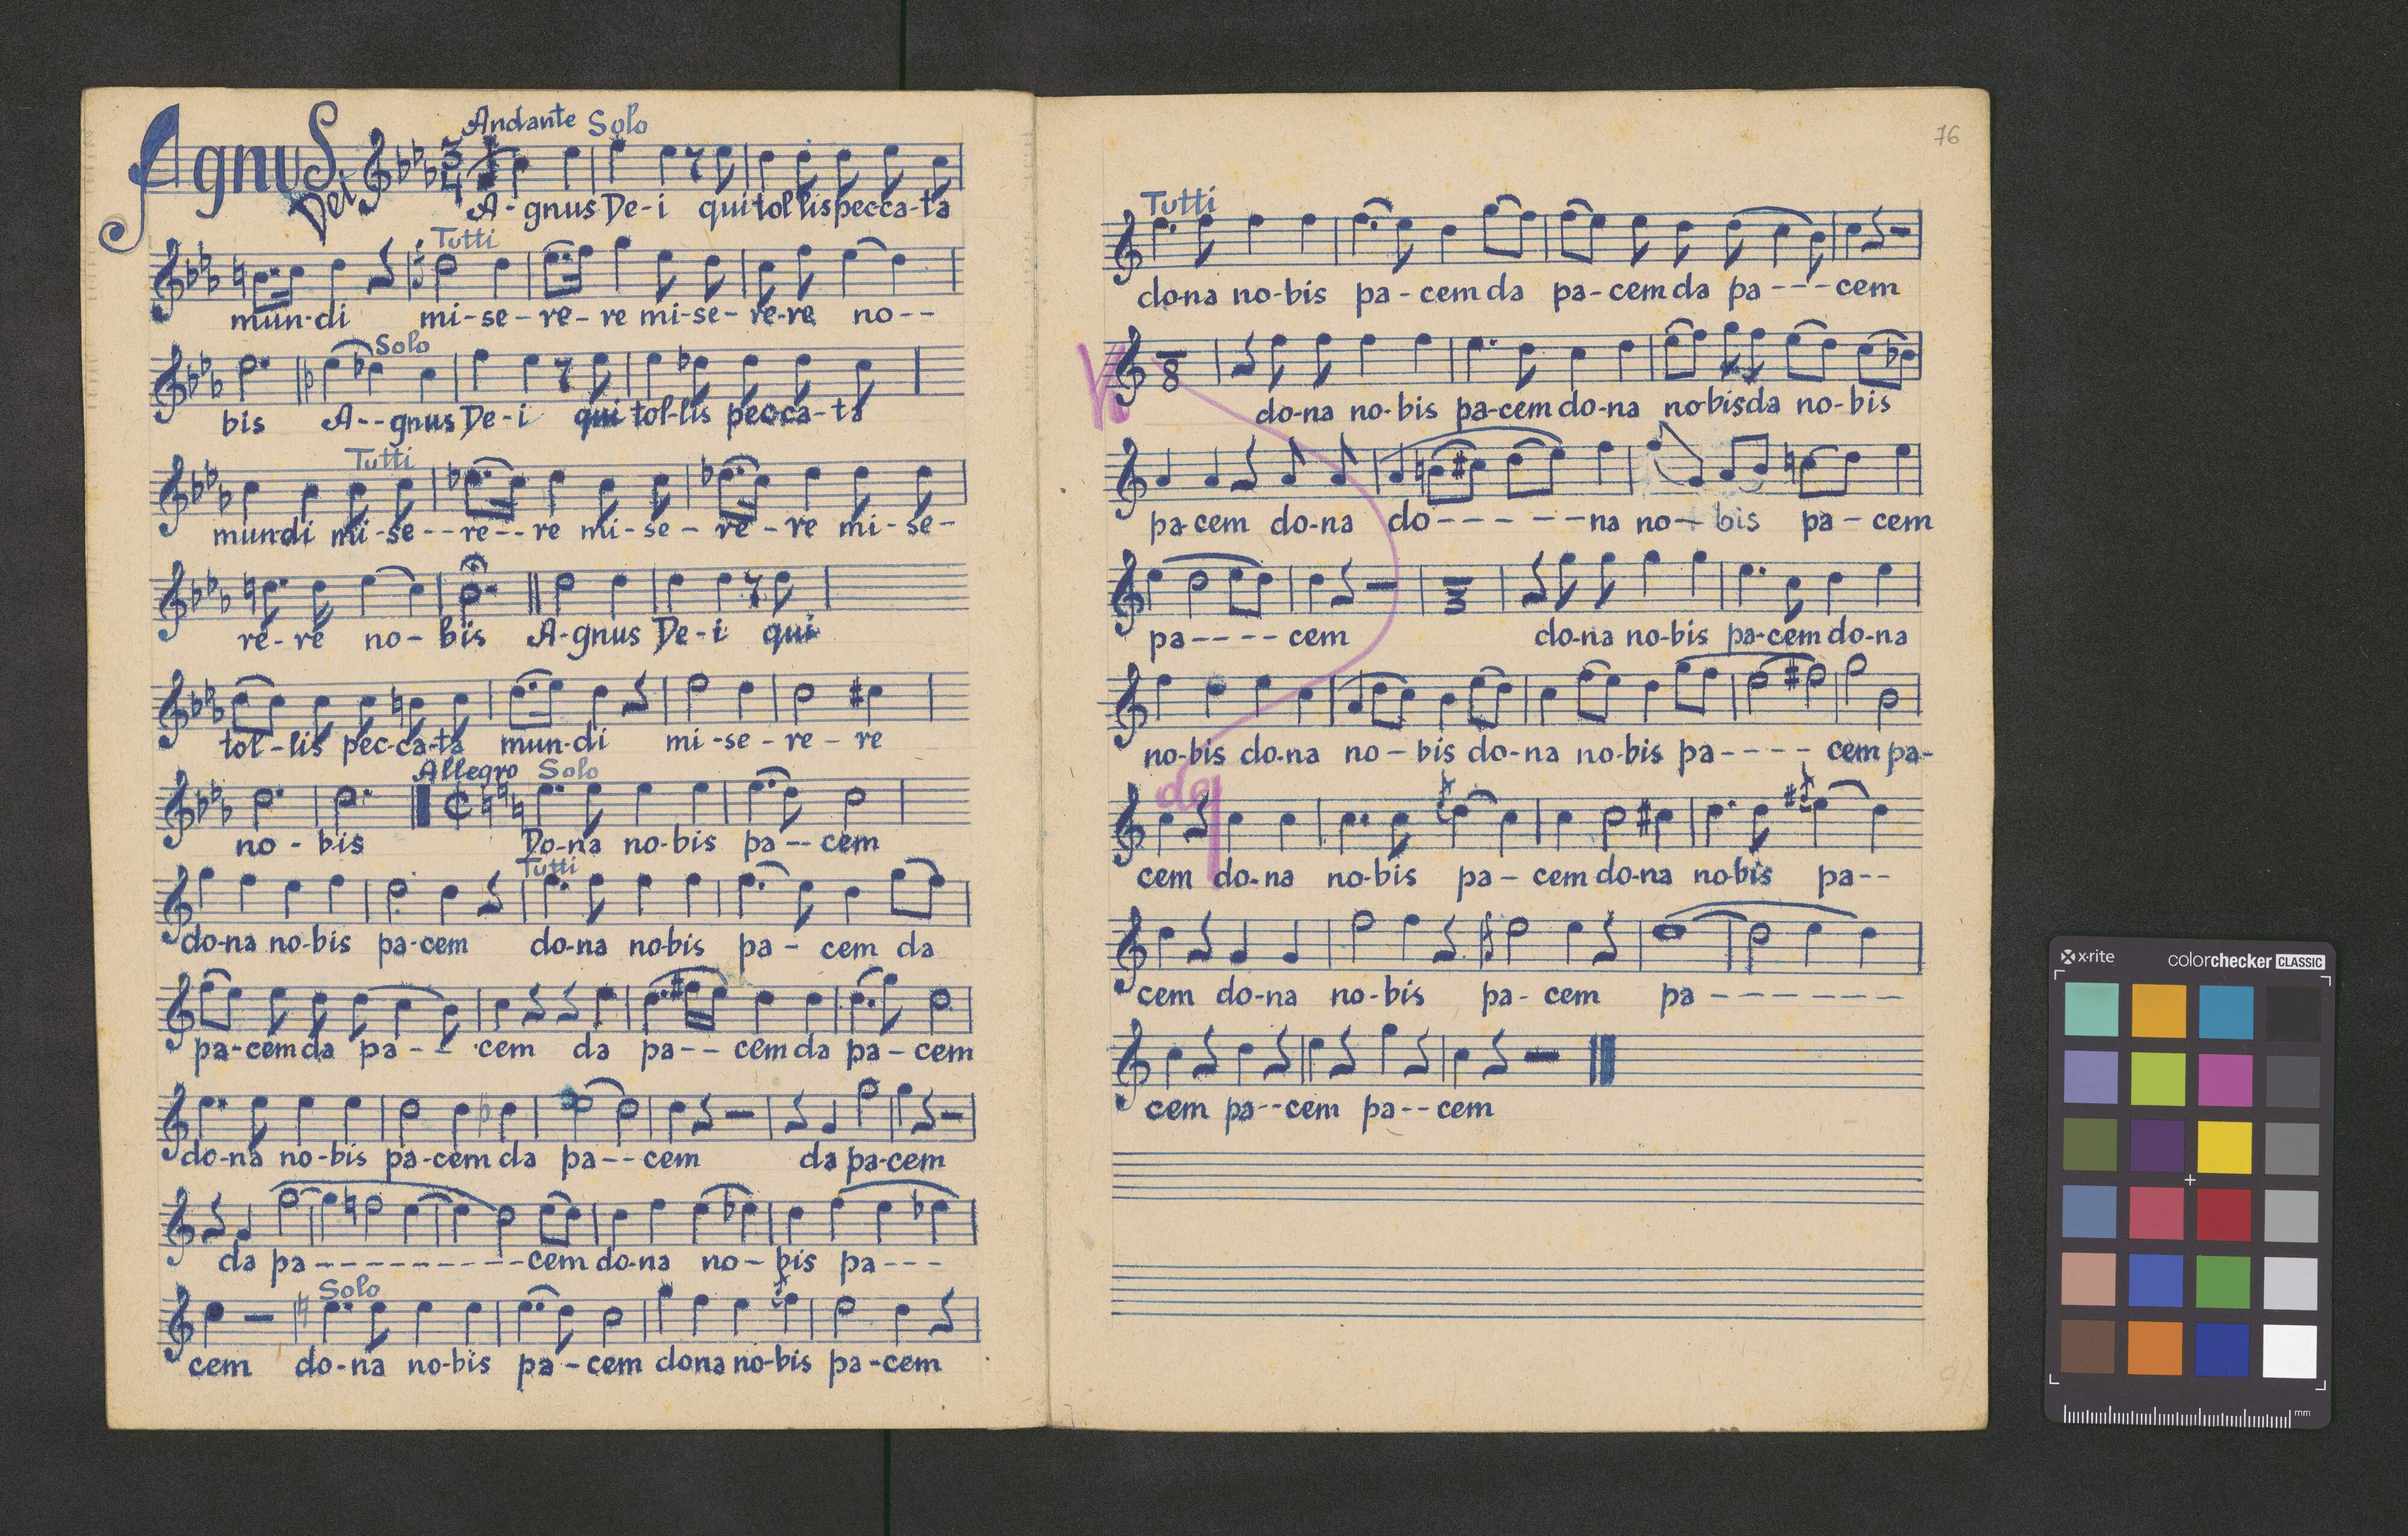 Andante Solo
Agnus Dei
A-gnus De-i qui tol lis pecca-ta
Tutti
mun-di mi-se-re-re mi-se-re-re no--
Solo
bis A--gnus De-i qui tol-lis pecca-ta
Tutti
mundi mi-se--re--re mi-se-re-re mi-se-
re-re no-bis A-gnus De-i qui
tol-lis pec-ca-ta mun-di mi-se-re-re
Allegro Solo
no-bis Do-na no-bis pa--cem
Tutti
do-na no-bis pa-cem do-na nobis pa-cem da
pa-cem da pa--cem da pa--cem da pa-cem
do-na no-bis pa-cem da pa--cem da pa-cem
da pa----------cem do-na no-bis pa---
Solo
cem do-na no-bis pa-cem dona no-bis pa-cem
76
Tutti
do-na no-bis pa-cem da pa-cem da pa---cem
8
do-na no-bis pa-cem do-na no-bis da no-bis
pa-cem do-na do------na no-bis pa-cem
pa----cem do-na no-bis pa-cem do-na
no-bis do-na no-bis do-na no-bis pa----cem pa-
de
cem do-na no-bis pa-cem do-na no-bis pa--
cem do-na no-bis pa-cem pa-------
cem pa--cem pa--cem
x-rite colorchecker CLASSIC
mm